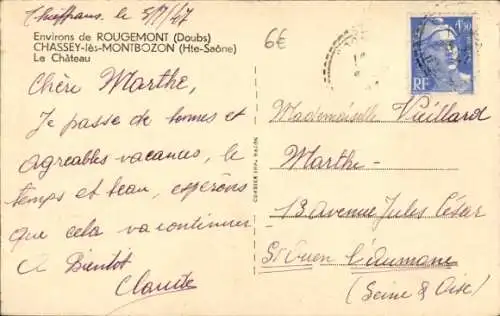 Thieffrans. le 5/7/47
Environs de ROUGEMONT (Doubs)
CHASSEY-lès-MONTBOZON (Hte-Saône)
Le Château
6€
4f50
RF
Chère Marthe,
Je passe de bonnes et
agréables vacances, le
temps et beau, espérons
que cela va continuer
A Bientôt
Claude
COURRIER IMP. MACON
Mademoiselle Vieillard
Marthe -
13 avenue Jules César
St Ouen l'aumone
(Seine & Oise)